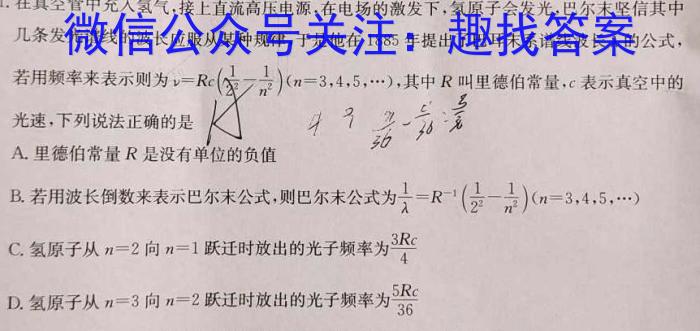 1.在真空管中充入氢气,接上直流高压电源,在电场的激发下,氢原子会发光,巴尔末坚信其中
几条发
微信公众号关注：趣找答案
1885年提出
的公式,
若用频率来表示则为ν=Rc(1/2²-1/n²)(n=3,4,5,…),其中 R 叫里德伯常量,c 表示真空中的
光速,下列说法正确的是
A. 里德伯常量 R 是没有单位的负值
B. 若用波长倒数来表示巴尔末公式,则巴尔末公式为1/λ=R⁻¹(1/2²-1/n²)(n=3,4,5,…)
C. 氢原子从 n=2 向 n=1 跃迁时放出的光子频率为3Rc/4
D. 氢原子从 n=3 向 n=2 跃迁时放出的光子频率为5Rc/36